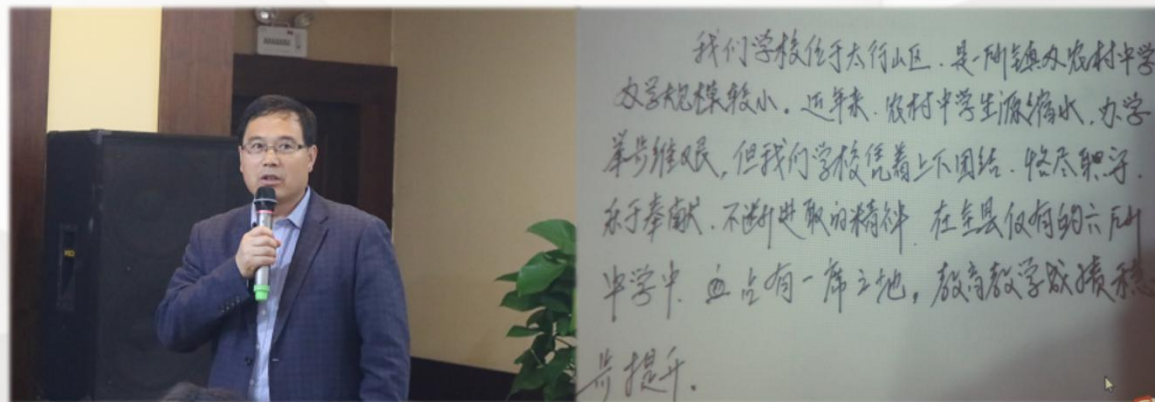 我们学校位于太行山区.是一所镇办农村中学
办学规模较小。近年来.农村中学生源缩水.办学
举步维艰,但我们学校凭着上下团结.恪尽职守.
乐于奉献.不断进取的精神.在全县仅有的六所
中学中.也占有一席之地,教育教学成绩稳
步提升。